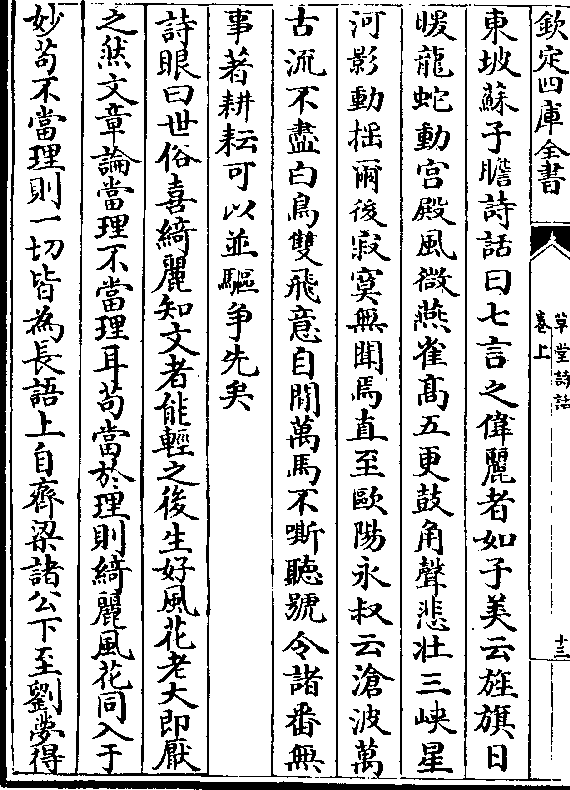 欽定四庫全書
草堂詩話
卷上
十三
東坡蘇子瞻詩話曰七言之偉麗者如子美云旌旗日
暖龍蛇動宮殿風微燕雀髙五更鼓角聲悲壯三峽星
河影動揺爾後寂寞無聞焉直至歐陽永叔云滄波萬
古流不盡白鳥雙飛意自閒萬馬不嘶聽號令諸番無
事著耕耘可以並驅爭先矣
詩眼曰世俗喜綺麗知文者能輕之後生好風花老大即厭
之然文章論當理不當理耳苟當於理則綺麗風花同入于
妙苟不當理則一切皆為長語上自齊梁諸公下至劉夢得